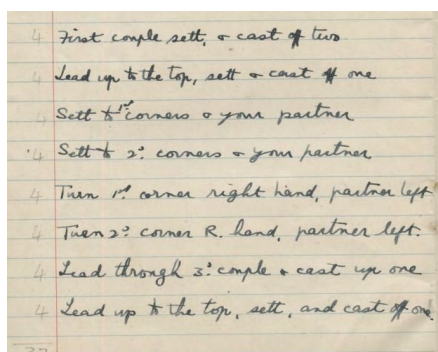 4 First couple sett, & cast off two.
4 Lead up to the top, sett & cast off one
4 Sett to 1st corners & your partner
4 Sett to 2d. corners & your partner
4 Turn 1st corner right hand, partner left
4 Turn 2d corner R. hand, partner left.
4 Lead through 3d couple & cast up one
4 Lead up to the top, sett, and cast off one.
32